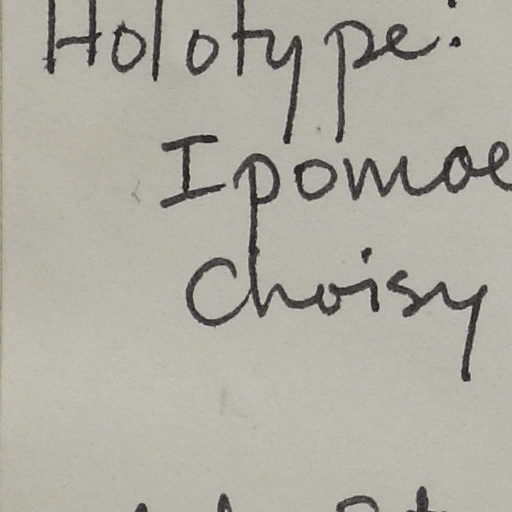 Holotype:
Ipomoe
Choisy